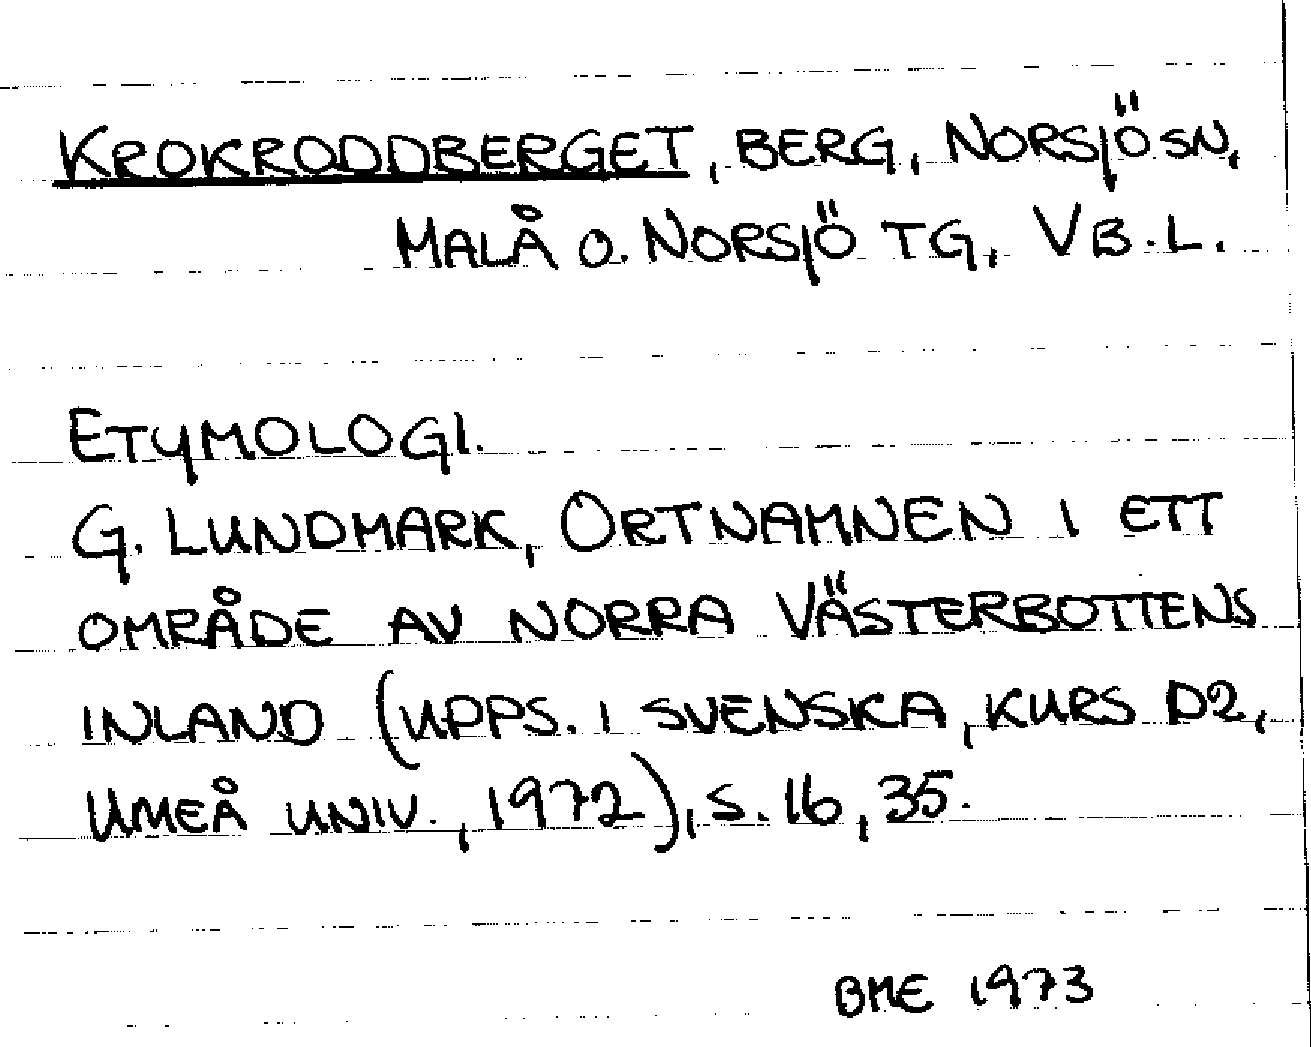 KROKRODDBERGET, BERG, NORSJÖ SN,
MALÅ O. NORSJÖ TG, VB.L.
ETYMOLOGI.
G. LUNDMARK, ORTNAMNEN I ETT
OMRÅDE AV NORRA VÄSTERBOTTENS
INLAND (UPPS. I SVENSKA, KURS D2,
UMEÅ UNIV., 1972), S. 16, 35.
BME 1973